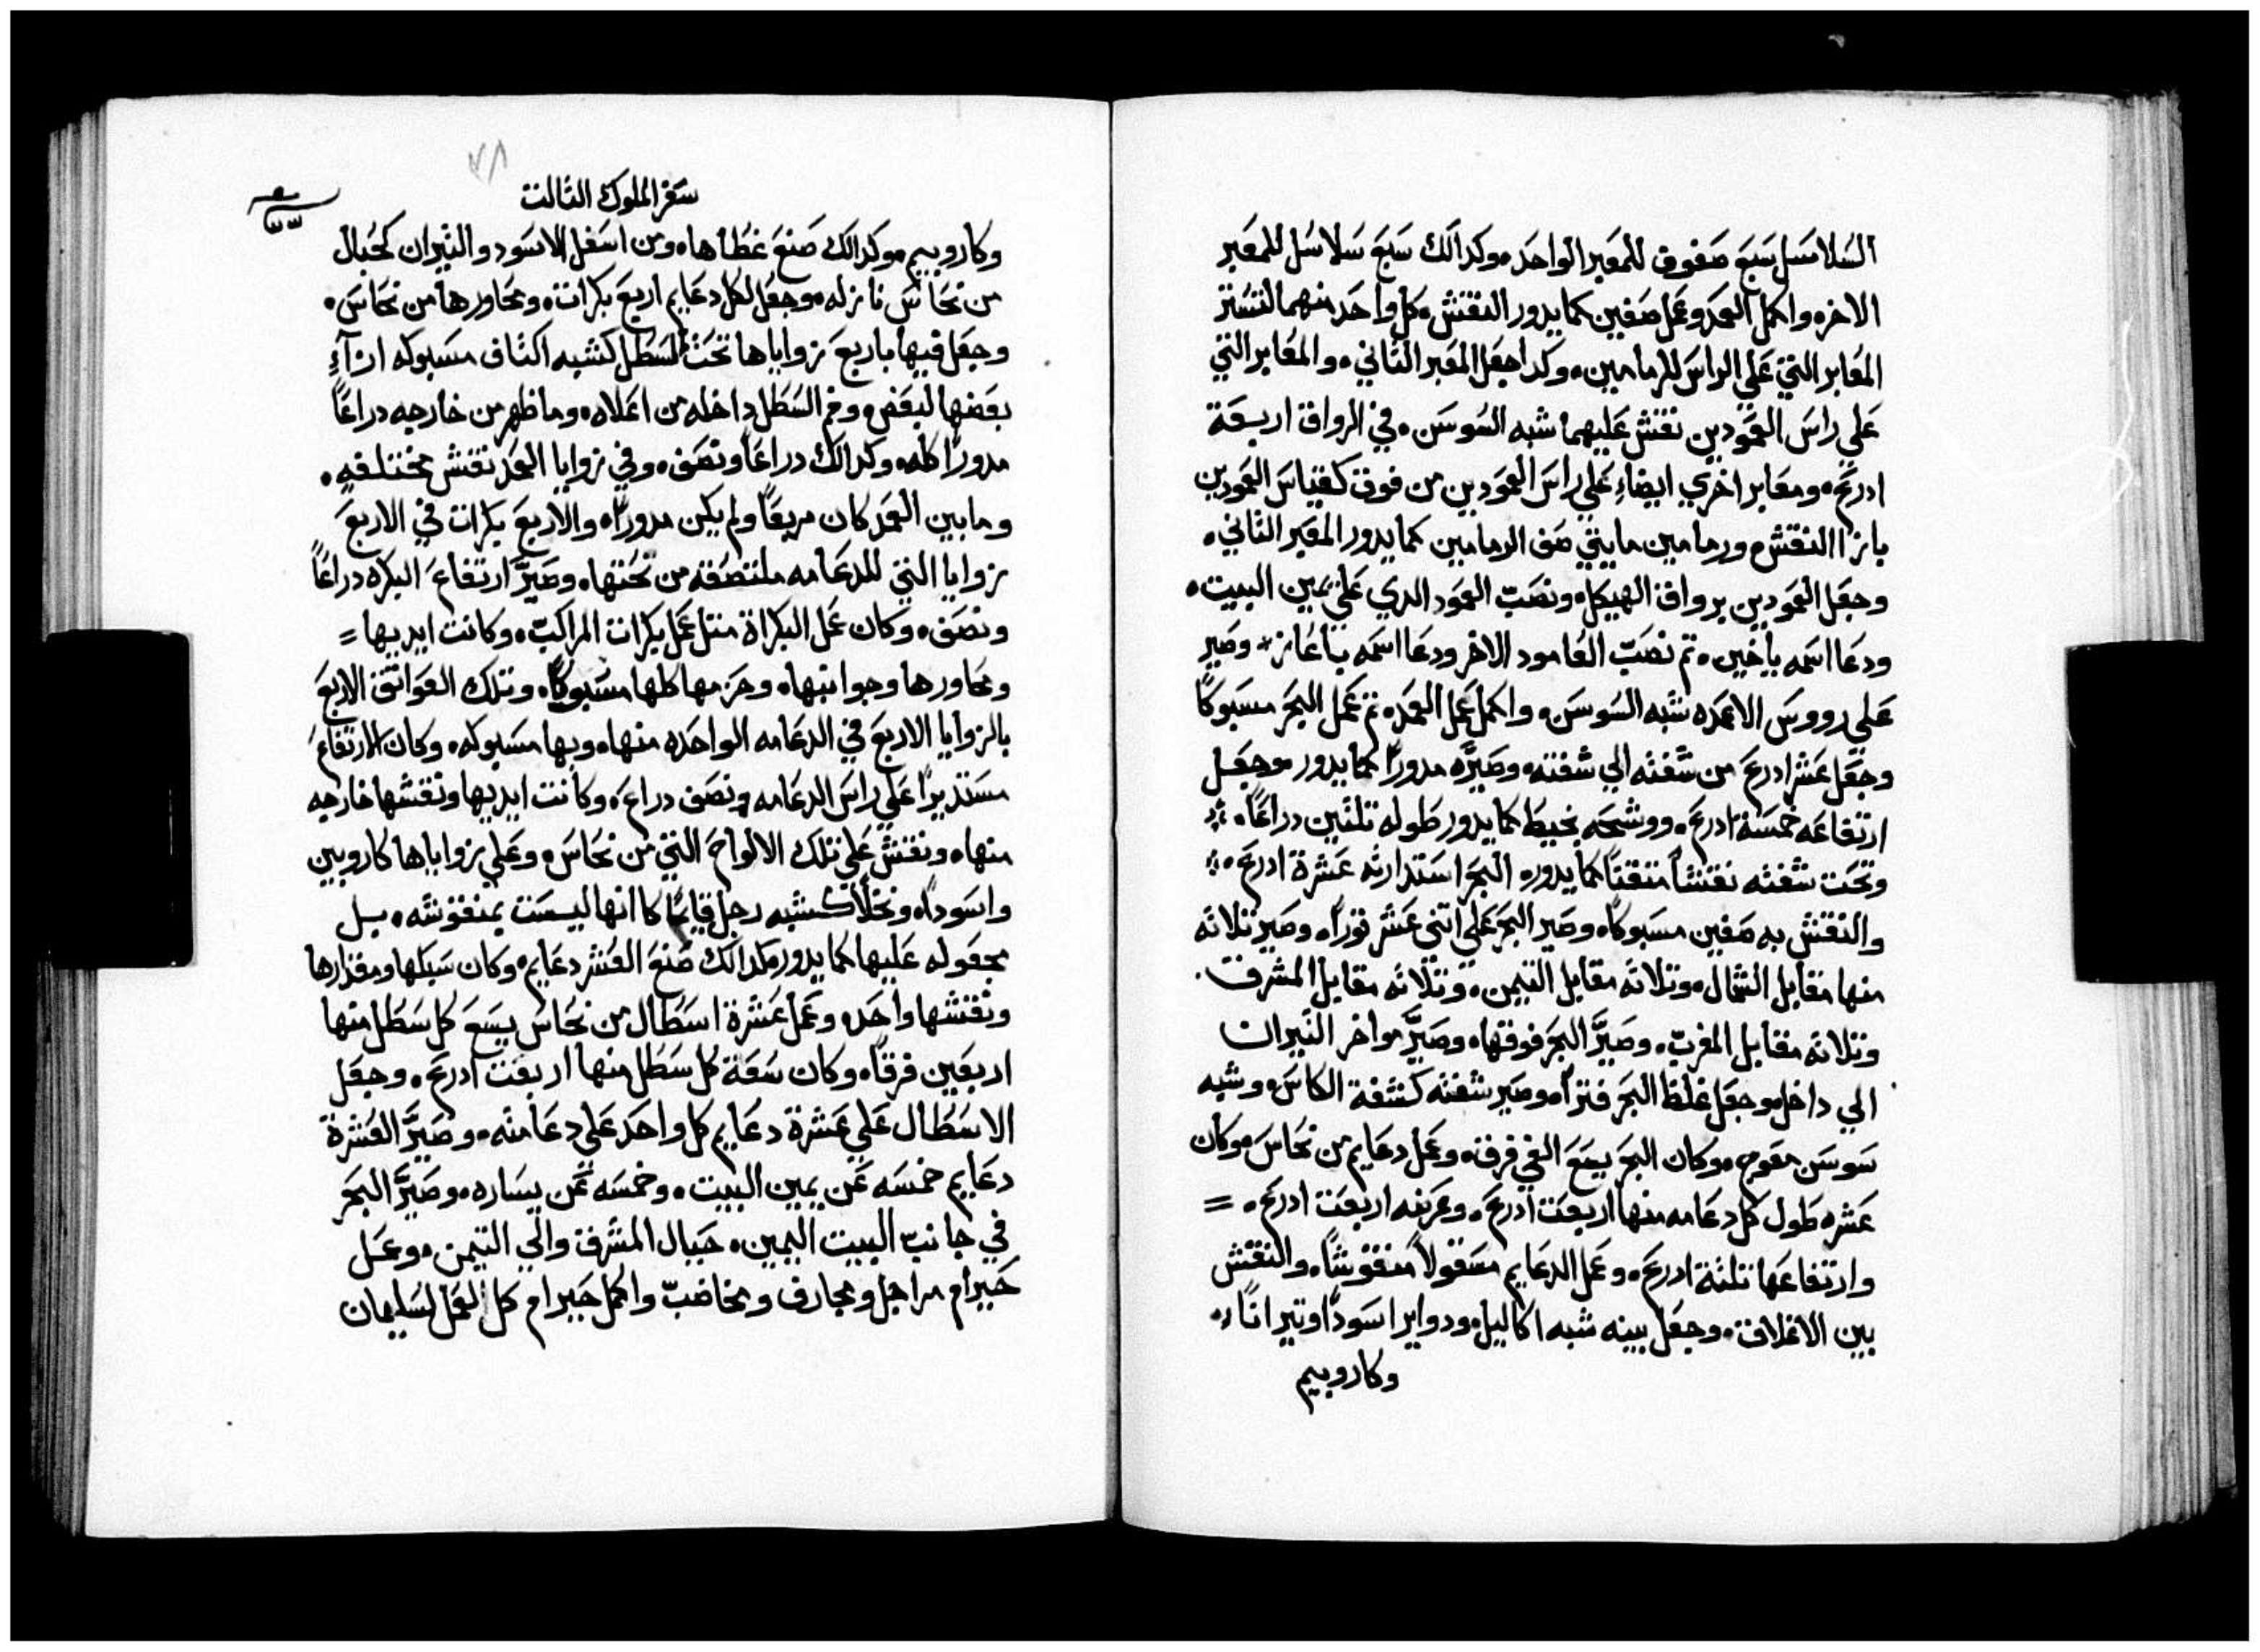 السلاسل سبع صفوف للمعبر الواحد وكدالك سبع سلاسل للمعبر
الاخر واكمل العمد وعمل صفين كما يدور النقش كل واحد منهما لتستر
المعابر التي علي الراس للرمامين وكدا جعل المعبر التاني والمعابر التي
علي راس العمودين نقش عليهما شبه السوسن في الرواق اربعة
ادرع ومعابر اخري ايضاء علي راس العمودين من فوق كقياس العمودين
بارزا النقش ورمامين مايتي صف الرمامين كما يدور المعبر التاني
وجعل العمودين برواق الهيكل ونصب العمود الدي علي يمين البيت
ودعا اسمه ياخين تم نصب العامود الاخر ودعا اسمه باعاز وصير
علي رووس الاعمده شبه السوسن واكمل عمل العمد تم عمل البحر مسبوكاً
وجعل عشر ادرع من شفته الي شفته وصيره مدوراً كما يدور وجعل
ارتفاعه خمسة ادرع ووشحه بخيط كما يدور طوله تلتين دراعاً
وتحت شفته نقشاً متقناً كما يدور البحر استدارته عشرة ادرع
والنقش به صفين مسبوكاً وصير البحر علي اتني عشر توراً وصير تلاته
منها مقابل الشمال وتلاته مقابل التيمن وتلاته مقابل المشرق
وتلاته مقابل المغرب وصير البحر فوقها وصير مواخر التيران
الي داخل وجعل غلظ البحر فتراً وصير شفته كشفة الكاس وشبه
سوسن معوج وكان البحر يسع الفي فرق وعمل دعايم من نحاس وكان
عشره طول كل دعامه منها اربعت ادرع وعرضه اربعت ادرع =
وارتفاعها تلتة ادرع وعمل الدعايم مسقولاً منقوشاً والنقش
بين الاغلاق وجعل بينه شبه اكاليل ودواير اسوداً وتيراناً
وكاروبيم
سفر الملوك التالت
وكاروبيم وكدالك صنع غطاها ومن اسفل الاسود والتيران كحبال
من نحاس نازله وجعل لكل دعايم اربع بكرات ومحاورها من نحاس
وجعل فيها باربع زواياها تحت السطل كشبه اكتاف مسبوكه ازآءِ
بعضها لبعض وفم السطل داخله من اعلاه وما ظهر من خارجه دراعاً
مدوراً كله وكدالك دراعاً ونصف وفي زوايا العمد نقش مختلفه
وما بين العمد كان مربعاً ولم يكن مدوراً والاربع بكرات في الاربع
زوايا التي للدعامه ملتصقه من تحتها وصير ارتفاع البكره دراعاً
ونصف وكان عمل البكراة متل عمل بكرات المراكب وكانت ايديها =
ومحاورها وجوانبها وحزمها كلها مسبوكاً وتلك العواتق الاربع
بالزوايا الاربع في الدعامه الواحده منها وبها مسبوكه وكان الارتفاع
مستديراً علي راس الدعامه ونصف دراع وكانت ايديها ونقشها خارجه
منها ونقش علي تلك الالواح التي من نحاس وعلي زواياها كاروبين
واسوداً ونخلاً كشبه رجل قايماً كا انها ليست بمنقوشه بل
مجعوله عليها كما يدور وكدالك صنع العشر دعايم وكان سبكها ومقدارها
ونقشها واحد وعمل عشرة اسطال من نحاس يسع كل سطل منها
اربعين فرقاً وكان سعة كل سطل منها اربعت ادرع وجعل
الاسطال علي عشرة دعايم كل واحد علي دعامته وصير العشرة
دعايم خمسه عن يمين البيت وخمسه عن يساره وصير البحر
في جانب البيت اليمين حبال المشرق والي التيمن وعمل
حيرام مراجل ومجارف ومخاضب واكمل حيرام كل العمل لسليمان